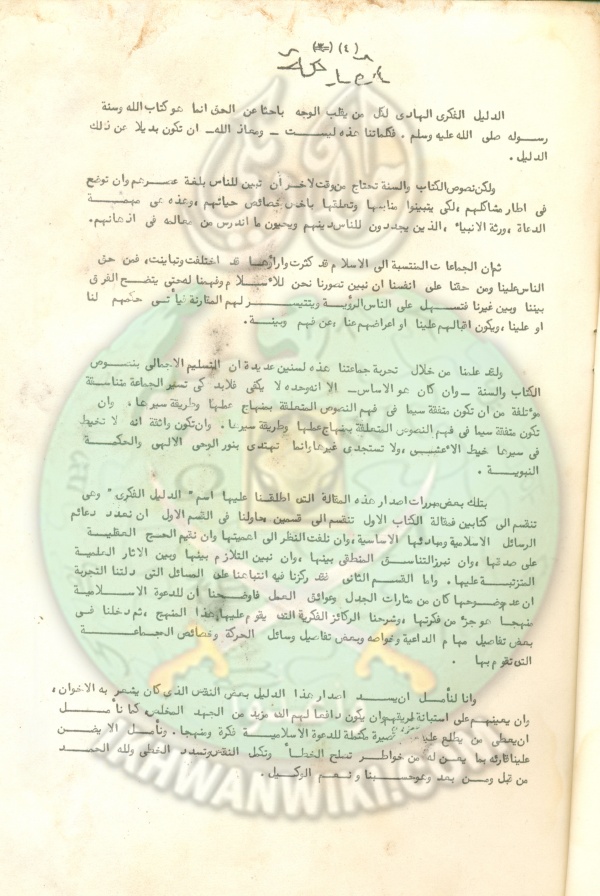 (٤)
الدليل الفكرى الهادى لكل من يقلب الوجه باحثا عن الحق انما هو كتاب الله وسنة
رسوله صلى الله عليه وسلم . فكلماتنا هذه ليست – ومعاذ الله – ان تكون بديلا عن ذلك
الدليل .
ولكن نصوص الكتاب والسنة تحتاج من وقت لاخر أن تبين للناس بلغة عصرهم وان توضع
فى اطار مشاكلهم ، لكى يتبينوا مناسبتها وتعلقها بأخص خصائص حياتهم ، وهذه هى مهمة
الدعاة ، ورثة الانبياء ، الذين يجددون للناس دينهم ويحيون ما اندرس من معالمه فى اذهانهم.
ثم ان الجماعات المنتسبة الى الاسلام قد كثرت وارآؤها قد اختلفت وتباينت ، فمن حق
الناس علينا ومن حقنا على انفسنا ان نبين تصورنا نحن للاسلام وفهمنا له حتى يتضح الفرق
بيننا وبين غيرنا فتسهل على الناس الرؤية ويتيسر لهم المقارنة فيأتى حكمهم لنا
او علينا ، ويكون اقبالهم علينا او اعراضهم عنا ، عن فهم وبينة .
ولقد علمنا من خلال تجربة جماعتنا هذه لسنين عديدة ان التسليم الاجمالى بنصوص
الكتاب والسنة – وان كان هو الاساس – الا انه وحده لا يكفى فلابد كى تسير الجماعة متناسقة
مؤتلفة من ان تكون متفقة سيما فى فهم النصوص المتعلقة بمنهاج عملها وطريقة سيرها ، وان
تكون متفقة سيما فى فهم النصوص المتعلقة بمنهاج عملها وطريقة سيرها . وان تكون واثقة انه لا تخبط
فى سيرها خبط الاعشى ، ولا تستجدى غيرها وانما تهتدى بنور الوحى الالهى والحكمة
النبوية .
بتلك بعض مبررات اصدار هذه المقالة التى اطلقنا عليها اسم " الدليل الفكرى " وهى
تنقسم الى كتابين فمقالة الكتاب الاول تنقسم الى قسمين حاولنا فى القسم الاول ان نحدد دعائم
الرسائل الاسلامية ومبادئها الاساسية ، وان نلفت النظر الى اهميتها وان نقيم الحجج العقلية
على صدقها ، وان نبرز التناسق المنطقى بينها ، وان نبين التلازم بينها وبين الاثار العلمية
المترتبة عليها . واما القسم الثانى فقد ركزنا فيه انتباهنا على المسائل التى دلتنا التجربة
ان عدم وضوحها كان من مثارات الجدل وعوائق العمل فاوضحنا أن للدعوة الاسلامية
منهجا هو جزء من فكرتها ، وشرحنا الركائز الفكرية التى يقوم عليها هذا المنهج ، ثم دخلنا فى
بعض تفاصيل مهام الداعية وخواصه وبعض تفاصيل وسائل الحركة وخصائص الجماعة
التى تقوم بها .
وانا لنأمل ان يسد اصدار هذا الدليل بعض النقص الذى كان يشعر به الاخوان ،
وان يعينهم على استبانة طريقهم وان يكون دافعا لهم الى مزيد من الجهد المخلص كما نأمل
ان يعطى من يطلع عليه صورة مكتملة للدعوة الاسلامية فكرة ومنهجا . ونأمل الا يضن
علينا قارئه بما يعن له من خواطر تصلح الخطأ وتكمل النقص وتسدد الخطى ولله الحمد
من قبل ومن بعد وهو حسبنا ونعم الوكيل .
IKHWANWIKI.COM